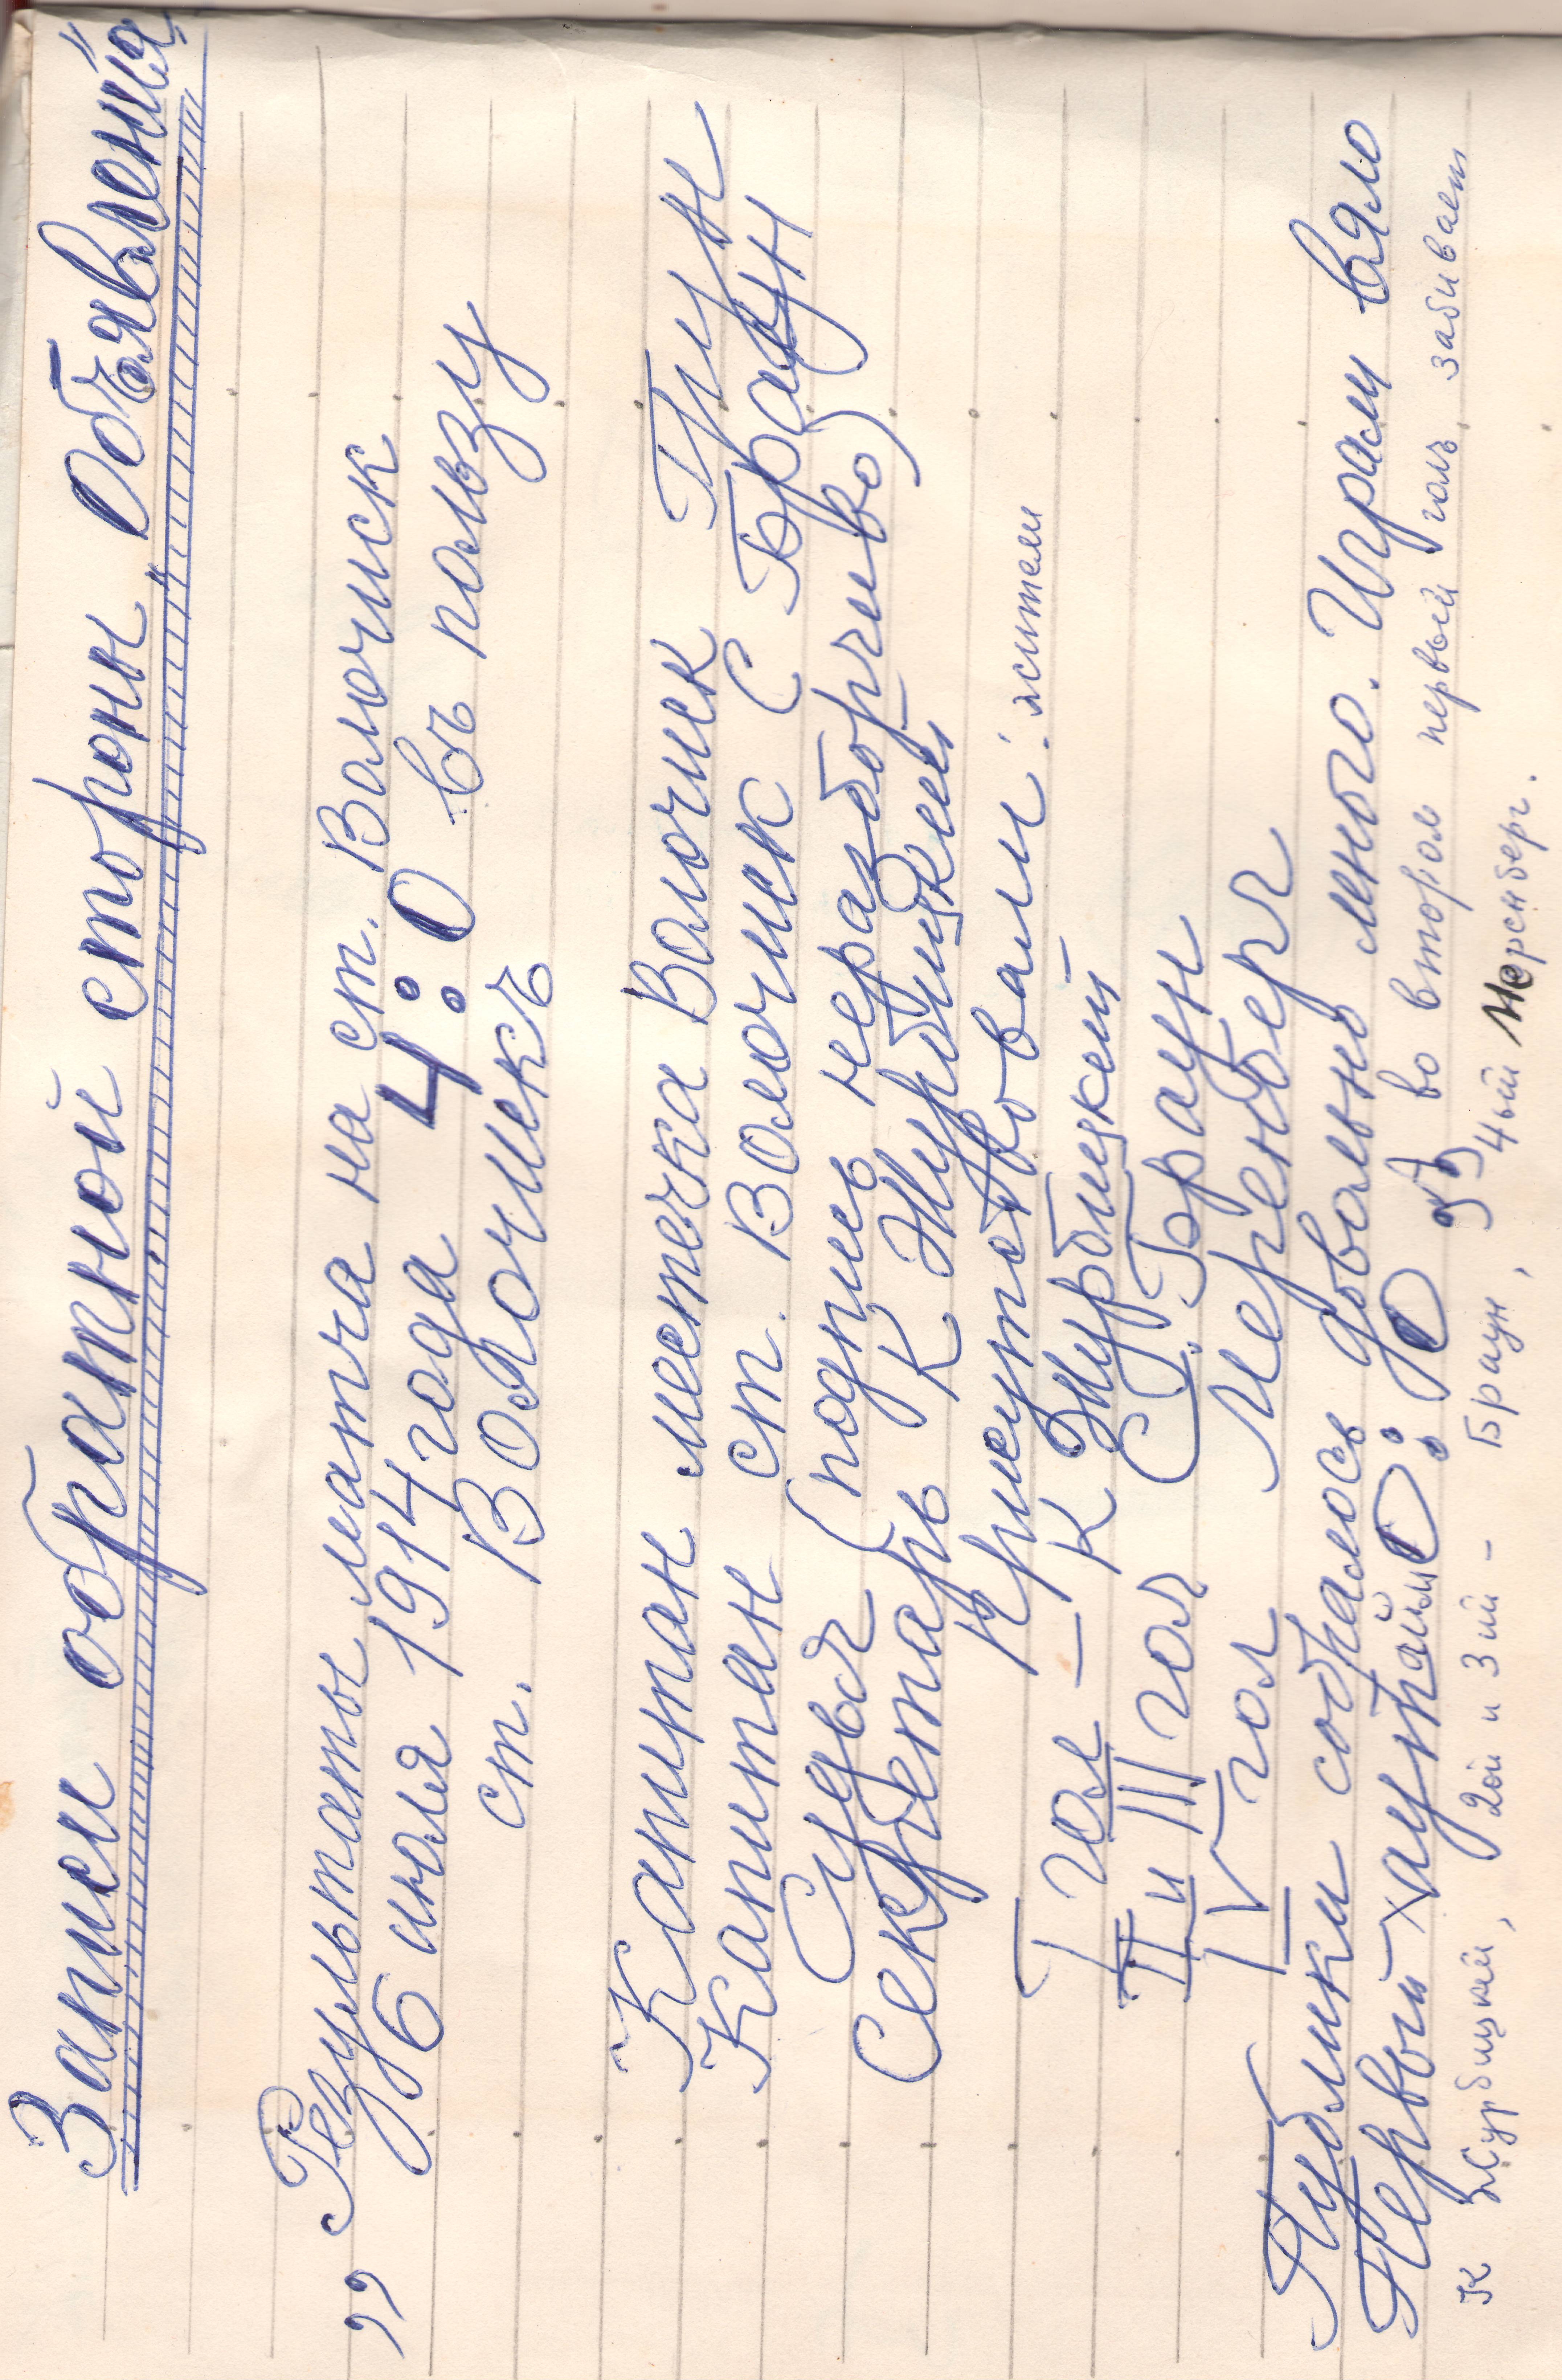 Записи обратной стороны "Объявления"
„Результаты матча на ст. Волочиск
6 июля 1914 года 4:0 въ пользу
ст. Волочискъ
Капитан местечка Волочиск Грин
Капитан ст. Волочиск С Браун
Судья (подпись неразборчиво)
Секретарь К Журбицкий
Присутствовали: жители
I гол – К Журбицкий
II и III гол С. Браун
IV гол Меренберг
Публики собралось довольно много. Играли вяло
Первый хаутайм 0:0 „ во втором первый голъ забивает
К Журбицкий, 2ой и 3ий – Браун, 4ый Меренберг.